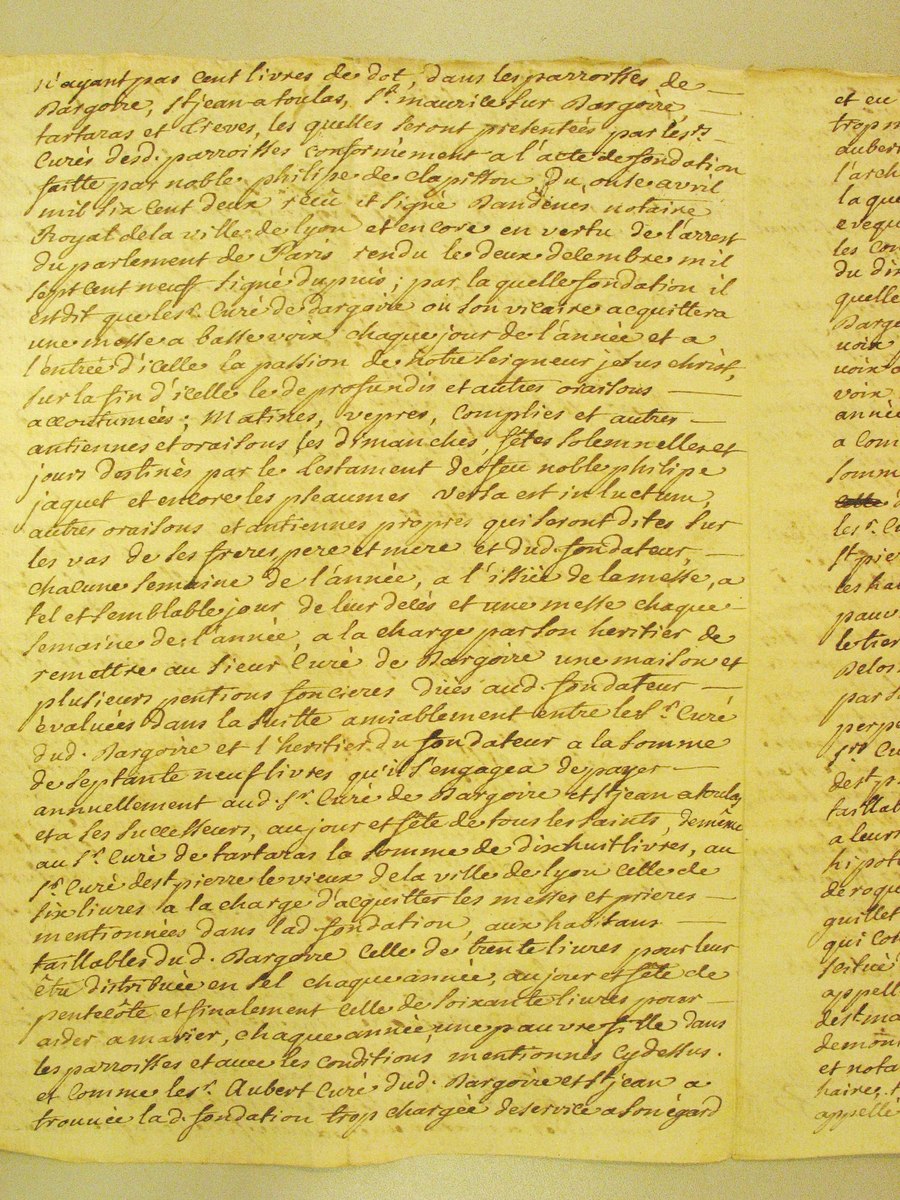 n'ayant pas Cent livres de dot, dans les parroisses de
Dargoire, St jean a toulas, St. maurice sur Dargoire
tartaras et Treves, les quelles seront presenteés par les Srs
Curés desd. parroisses conformement a l'acte de fondation
faitte par noble philipe de Clapisson Du onse avril
mil six Cent deux reçû et signé Dandenes notaire
Royal de la ville de lyon et encore en vertu de l'arrest
du parlement de Paris rendu le deux decembre mil
sept cent neuf signé dupuis ; par la quelle fondation il
est dit que le Sr. Curé de Dargoire ou son vicaire acquittera
une messe a basse voix chaque jour de l'année et a
l'entrée d'icelle la passion de notre seigneur jesus christ,
sur la fin d'icelle le de profundis et autres oraisons
accoutumées ; Matines, vepres, Complies et autres
antiennes et oraisons les dimanches, fêtes solemnelles et
jours destinés par le testament de feu noble philipe
jaquet et encore les pseaumes versa est in luctum,
autres oraisons et antiennes propres qui seront dites sur
les vas de ses freres pere et mere et dud. fondateur,
chacune semaine de l'année, a l'issüe de la messe, a
tel et semblable jour de leur decés et une messe chaque
semaine de l'année, a la charge par son heritier de
remettre au sieur Curé de Dargoire une maison et
plusieurs pentions foncieres düés aud. fondateur
évaluées dans la suitte amiablement entre le Sr. Curé
dud. Dargoire et l'heritier du fondateur a la somme
de septante neuf livres qu'il s'engagea de payer
annuellement aud. Sr. Curé de Dargoire et St jean a toulas
et a ses successeurs, au jour et fête de tous les saints, de même
au Sr. Curé de tartaras la somme de dixhuit livres, au
Sr. Curé de St pierre le vieux de la ville de lyon Celle de
six livres a la charge d'acquitter les messes et prieres
mentionnées dans lad. fondation, aux habitans
taillables dud. Dargoire Celle de trente livres pour leur
être distribuée en sel chaque année, au jour et fête de
pentecôte et finalement Celle de soixante livres pour
aider a marier, chaque année, une pauvre fille dans
les parroisses et avec les conditions mentionnés Cy dessus.
et Comme le Sr. Aubert Curé dud. Dargoire et St jean a
trouvée lad. fondation trop chargée de service a son égard
et en
trop
aubert
l'arch
la que
eveque
les Con
du dix
quelle
Darg
voix
voix
voix
année
a Com
somm
les Sr. Cu
St pie
les ha
pauv
le tier
Delos
par
perpe
Srs Cu
de St p
taillab
a leurs
hipot
de roque
guillet
qui
située
appell
de St ma
demon
et nota
haire,
appellé